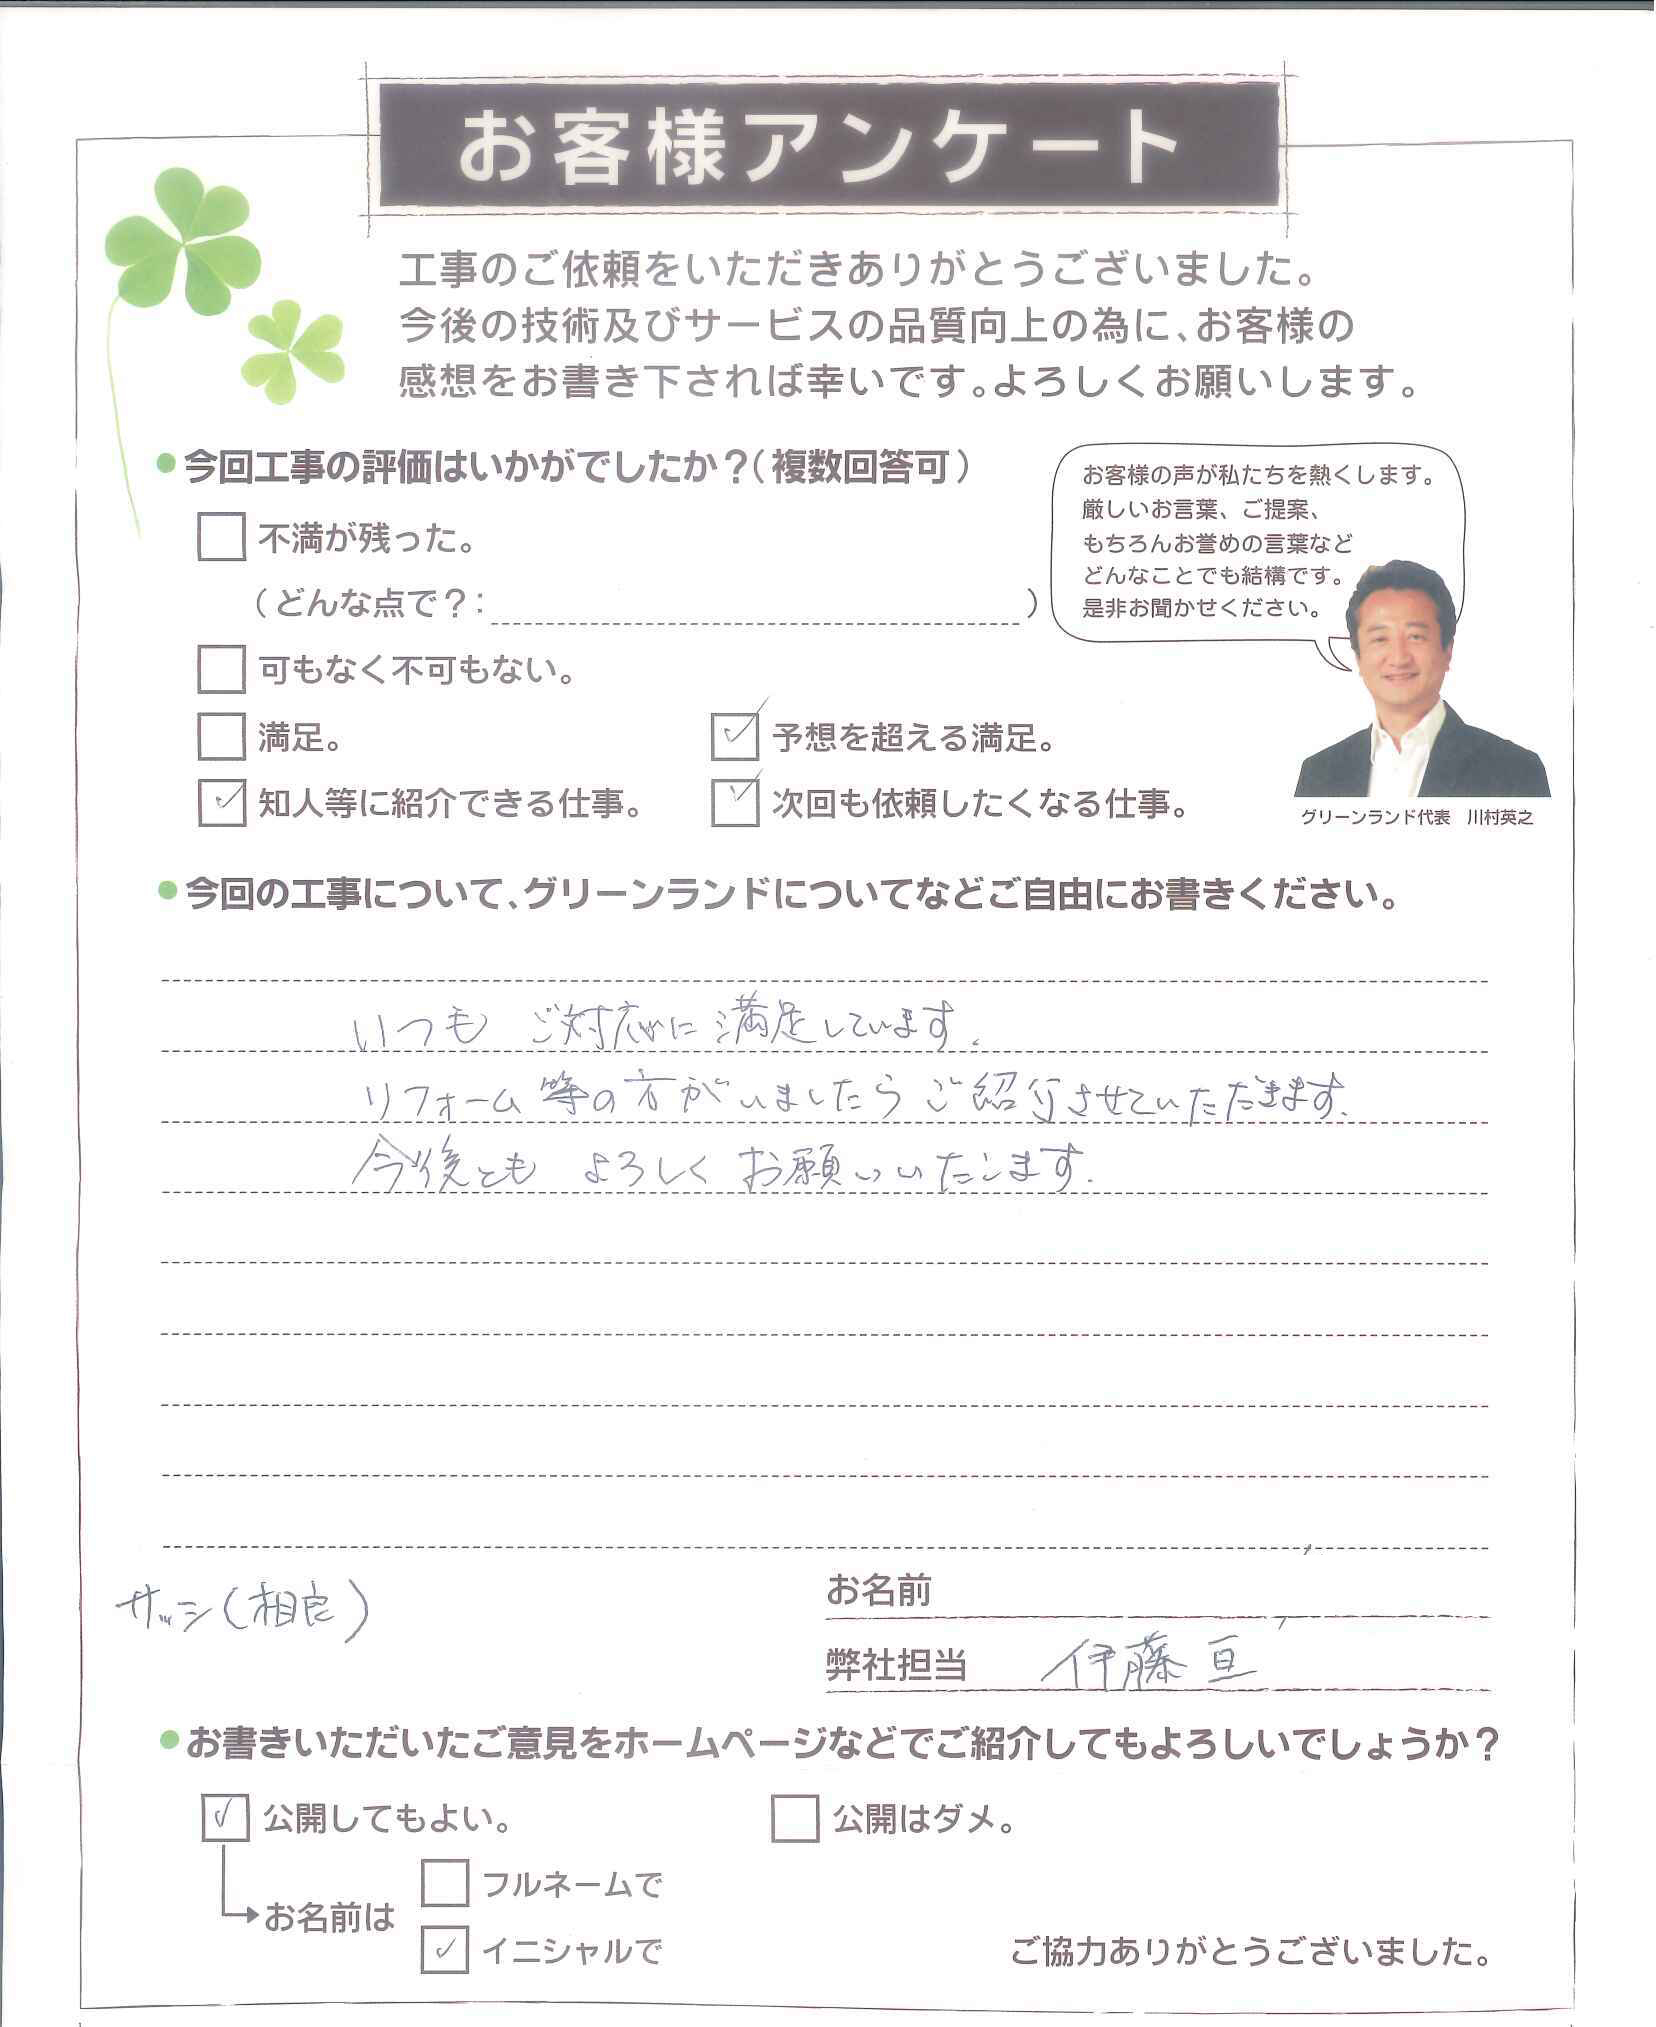 お客様アンケート
工事のご依頼をいただきありがとうございました。
今後の技術及びサービスの品質向上の為に、お客様の
感想をお書き下されば幸いです。よろしくお願いします。
今回工事の評価はいかがでしたか?(複数回答可)
お客様の声が私たちを熱くします。
厳しいお言葉、ご提案、
もちろんお誉めの言葉など
どんなことでも結構です。
是非お聞かせください。
不満が残った。
(どんな点で?: )
可もなく不可もない。
満足。
予想を超える満足。
知人等に紹介できる仕事。
次回も依頼したくなる仕事。
グリーンランド代表 川村英之
今回の工事について、グリーンランドについてなどご自由にお書きください。
いつも ご対応に満足しています.
リフォーム等の方がいましたらご紹介させていただきます.
今後とも よろしく お願いいたします.
サッシ(相良)
お名前
弊社担当 伊藤亘
お書きいただいたご意見をホームページなどでご紹介してもよろしいでしょうか?
公開してもよい。
公開はダメ。
お名前は
フルネームで
イニシャルで
ご協力ありがとうございました。